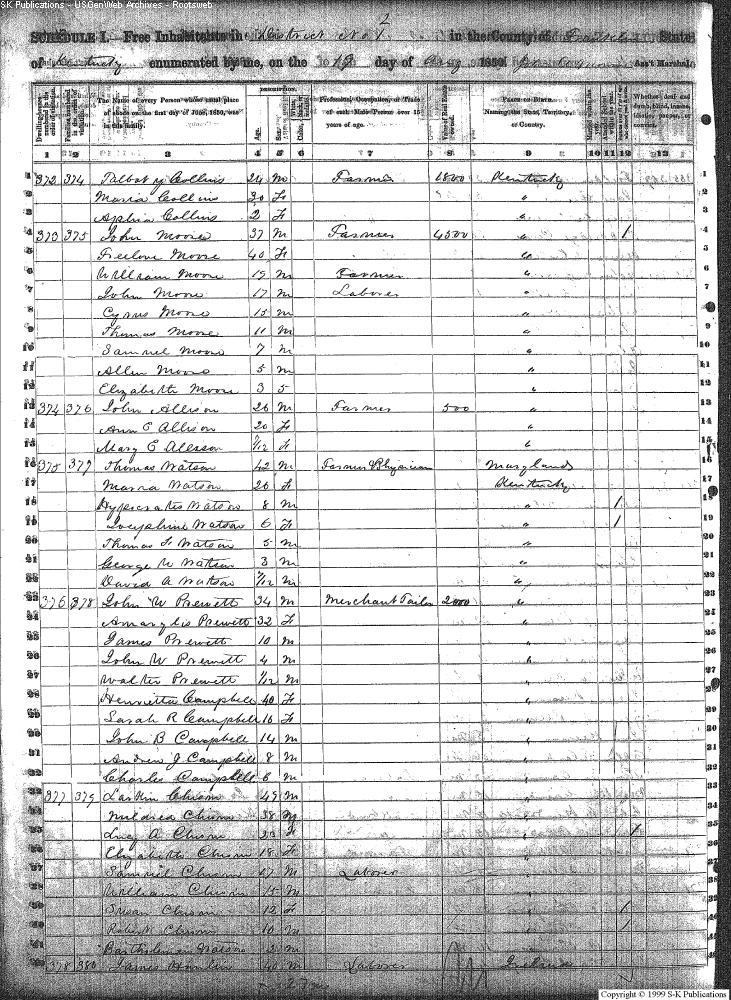 S-K Publications - USGenWeb Archives - Rootsweb
SCHEDULE I. Free Inhabitants in District No 1 2 in the County of State
of enumerated by me, on the 19 day of Aug 1850. Ass't Marshal.
Dwelling-houses numbered in the order of visitation. Families numbered in the order of visitation. The Name of every Person whose usual place of abode on the first day of June, 1850, was in this family. DESCRIPTION. Age. Sex. Color Profession, Occupation, or Trade of each Male Person over 15 years of age. Value of Real Estate owned. PLACE OF BIRTH. Naming the State, Territory, or Country. Whether deaf and dumb, blind, insane, idiotic, pauper, or convict.
1 2 3 4 5 6 7 8 9 10 11 12 13
1 372 374 Talbot Collins 24 M Farmer 1800 Kentucky 1
2 Maria Collins 30 F " 2
3 Collins 2 F " 3
4 373 375 John Moore 37 M Farmer 4500 " / 4
5 Freelove Moore 40 F " 5
6 William Moore 19 M Farmer " 6
7 John Moore 17 M Laborer " 7
8 Cyrus Moore 15 M " 8
9 Thomas Moore 11 M " 9
10 Samuel Moore 7 M " 10
11 Allen Moore 5 M " 11
12 Elizabeth Moore 3 " 12
13 374 376 John Allison 26 M Farmer 500 " 13
14 Ann E Allison 20 F " 14
15 Mary E Allison /12 F " 15
16 375 377 Thomas Watson 42 M Farmer & Physician Maryland 16
17 Maria Watson 26 F Kentucky 17
18 Hypocrates Watson 8 M " / 18
19 Josephine Watson 6 F " / 19
20 Thomas Watson 5 M " 20
21 George W Watson 3 M " 21
22 David A Watson /12 M " 22
23 376 378 John W Prewett 34 M Merchant Tailor 2000 " 23
24 Amarylis Prewett 32 F " 24
25 James Prewett 10 M " 25
26 John W Prewett 4 M " 26
27 Walter Prewett /12 M " 27
28 Henrietta Campbell 40 F " 28
29 Sarah R Campbell 16 F " 29
30 John B Campbell 14 M " 30
31 Andrew J Campbell 8 M " 31
32 Charles Campbell 6 M " 32
33 377 379 Larkin Chism 49 M " 33
34 Mildred Chism 38 " 34
35 Lucy A Chism 20 F " / 35
36 Elizabeth Chism 18 F " 36
37 Samuel Chism 17 M Laborer " 37
38 William Chism 15 M " 38
39 Susan Chism 12 F " / 39
40 Robert Chism 10 M " / 40
41 Bartholomew Watson M " 41
42 378 380 James 40 M Laborer Ireland 42
Copyright © 1999 S-K Publications